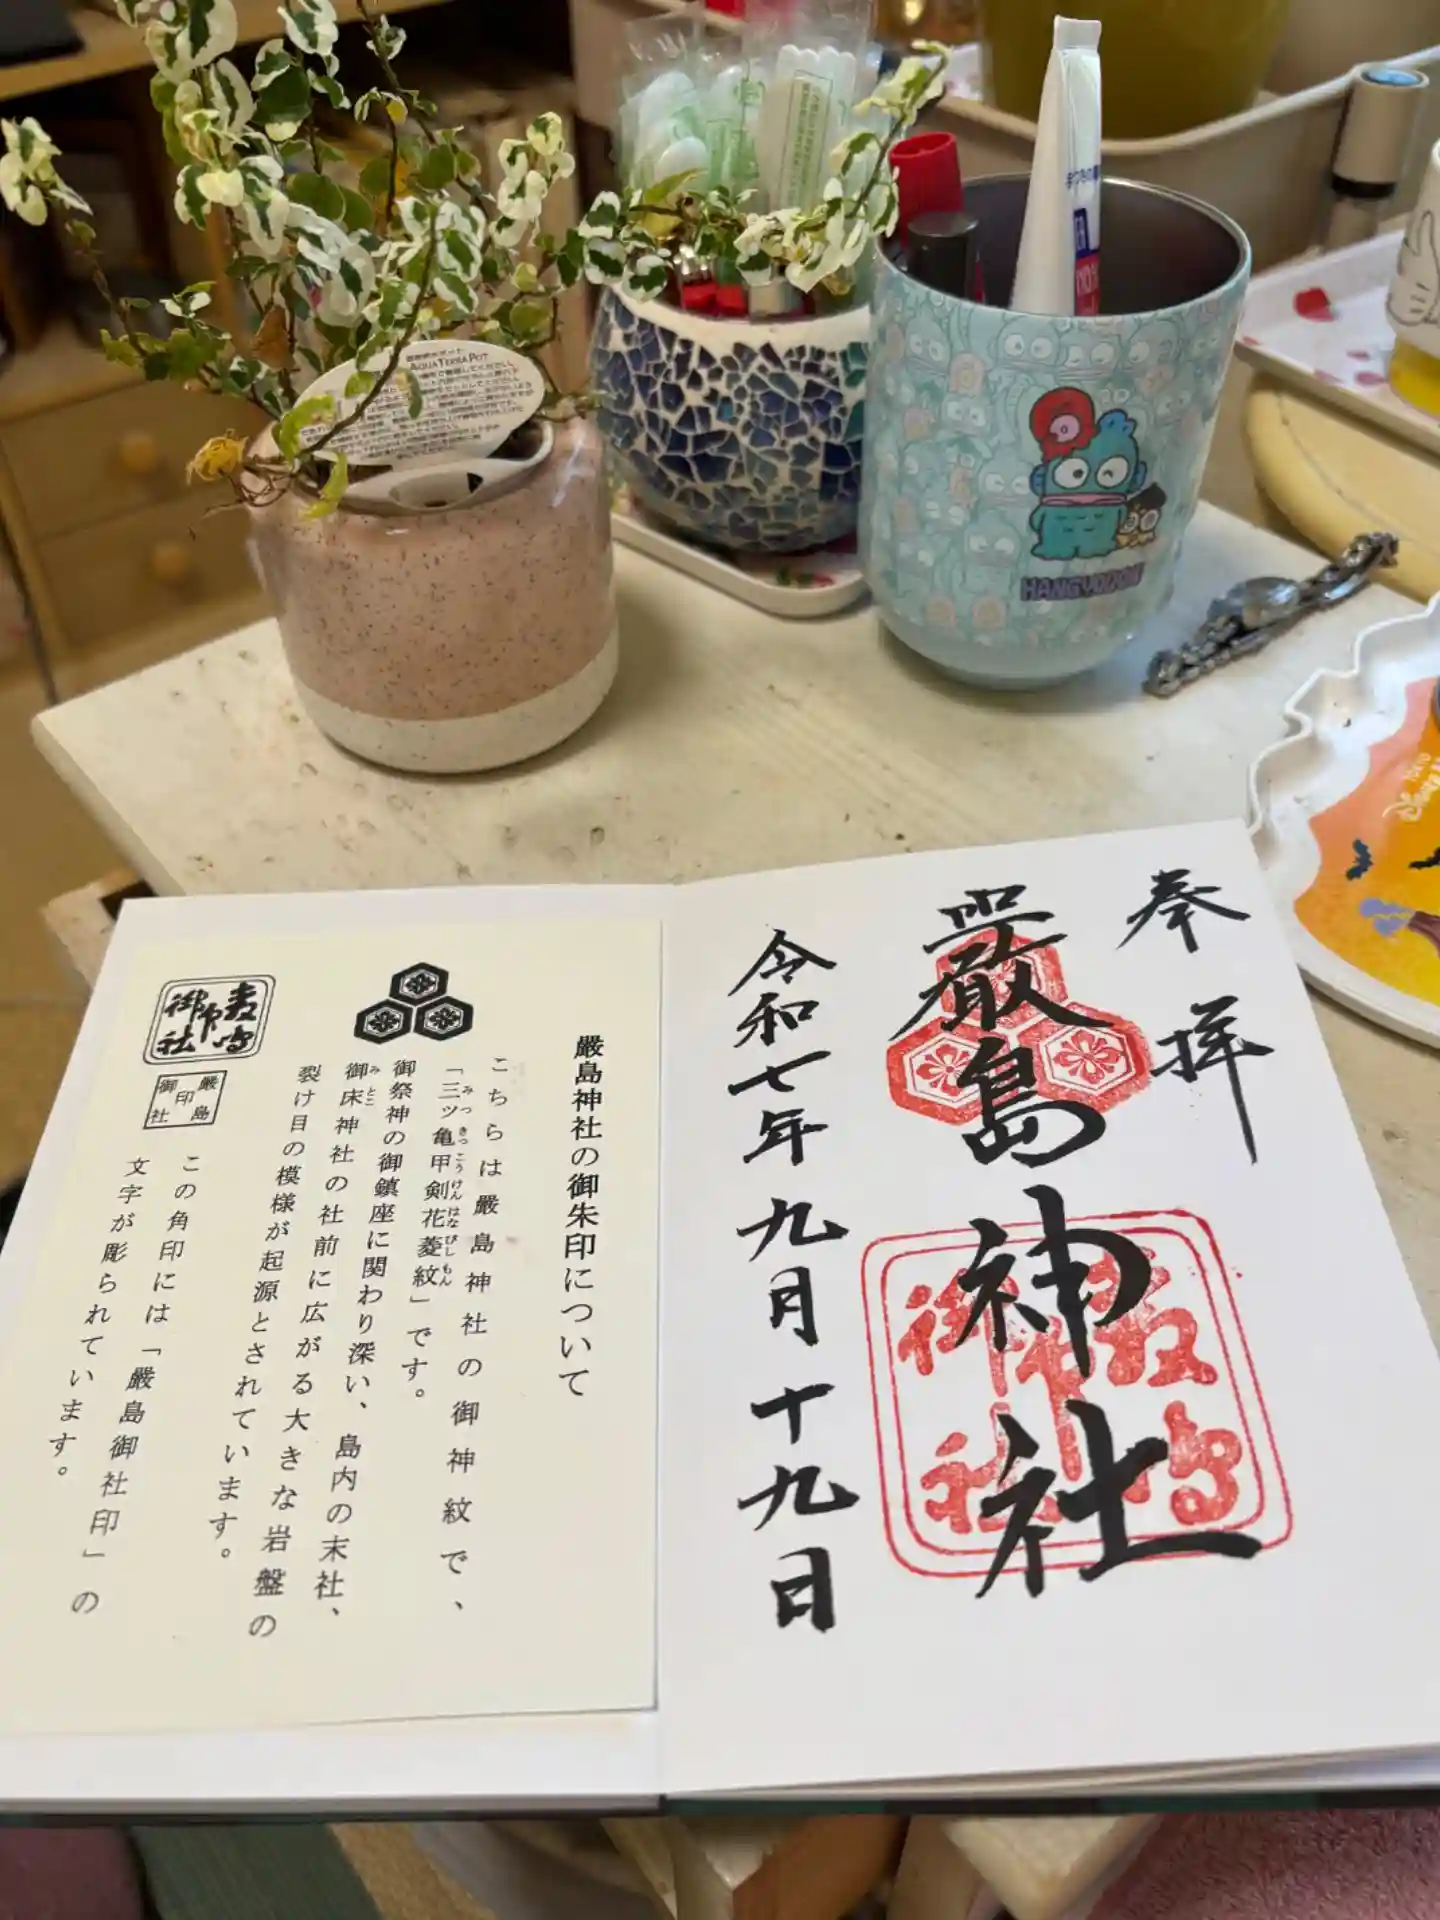 AQUA TERRA POT
HANGYODON
奉拝
嚴島神社
令和七年九月十九日
嚴島神社の御朱印について
こちらは嚴島神社の御神紋で、
「三ツ亀甲剣花菱紋」です。
みつきっこうけんはなびしもん
御祭神の御鎮座に関わり深い、島内の末社、
御床神社の社前に広がる大きな岩盤の
みとこ
裂け目の模様が起源とされています。
嚴島
御印
社
この角印には「嚴島御社印」の
文字が彫られています。